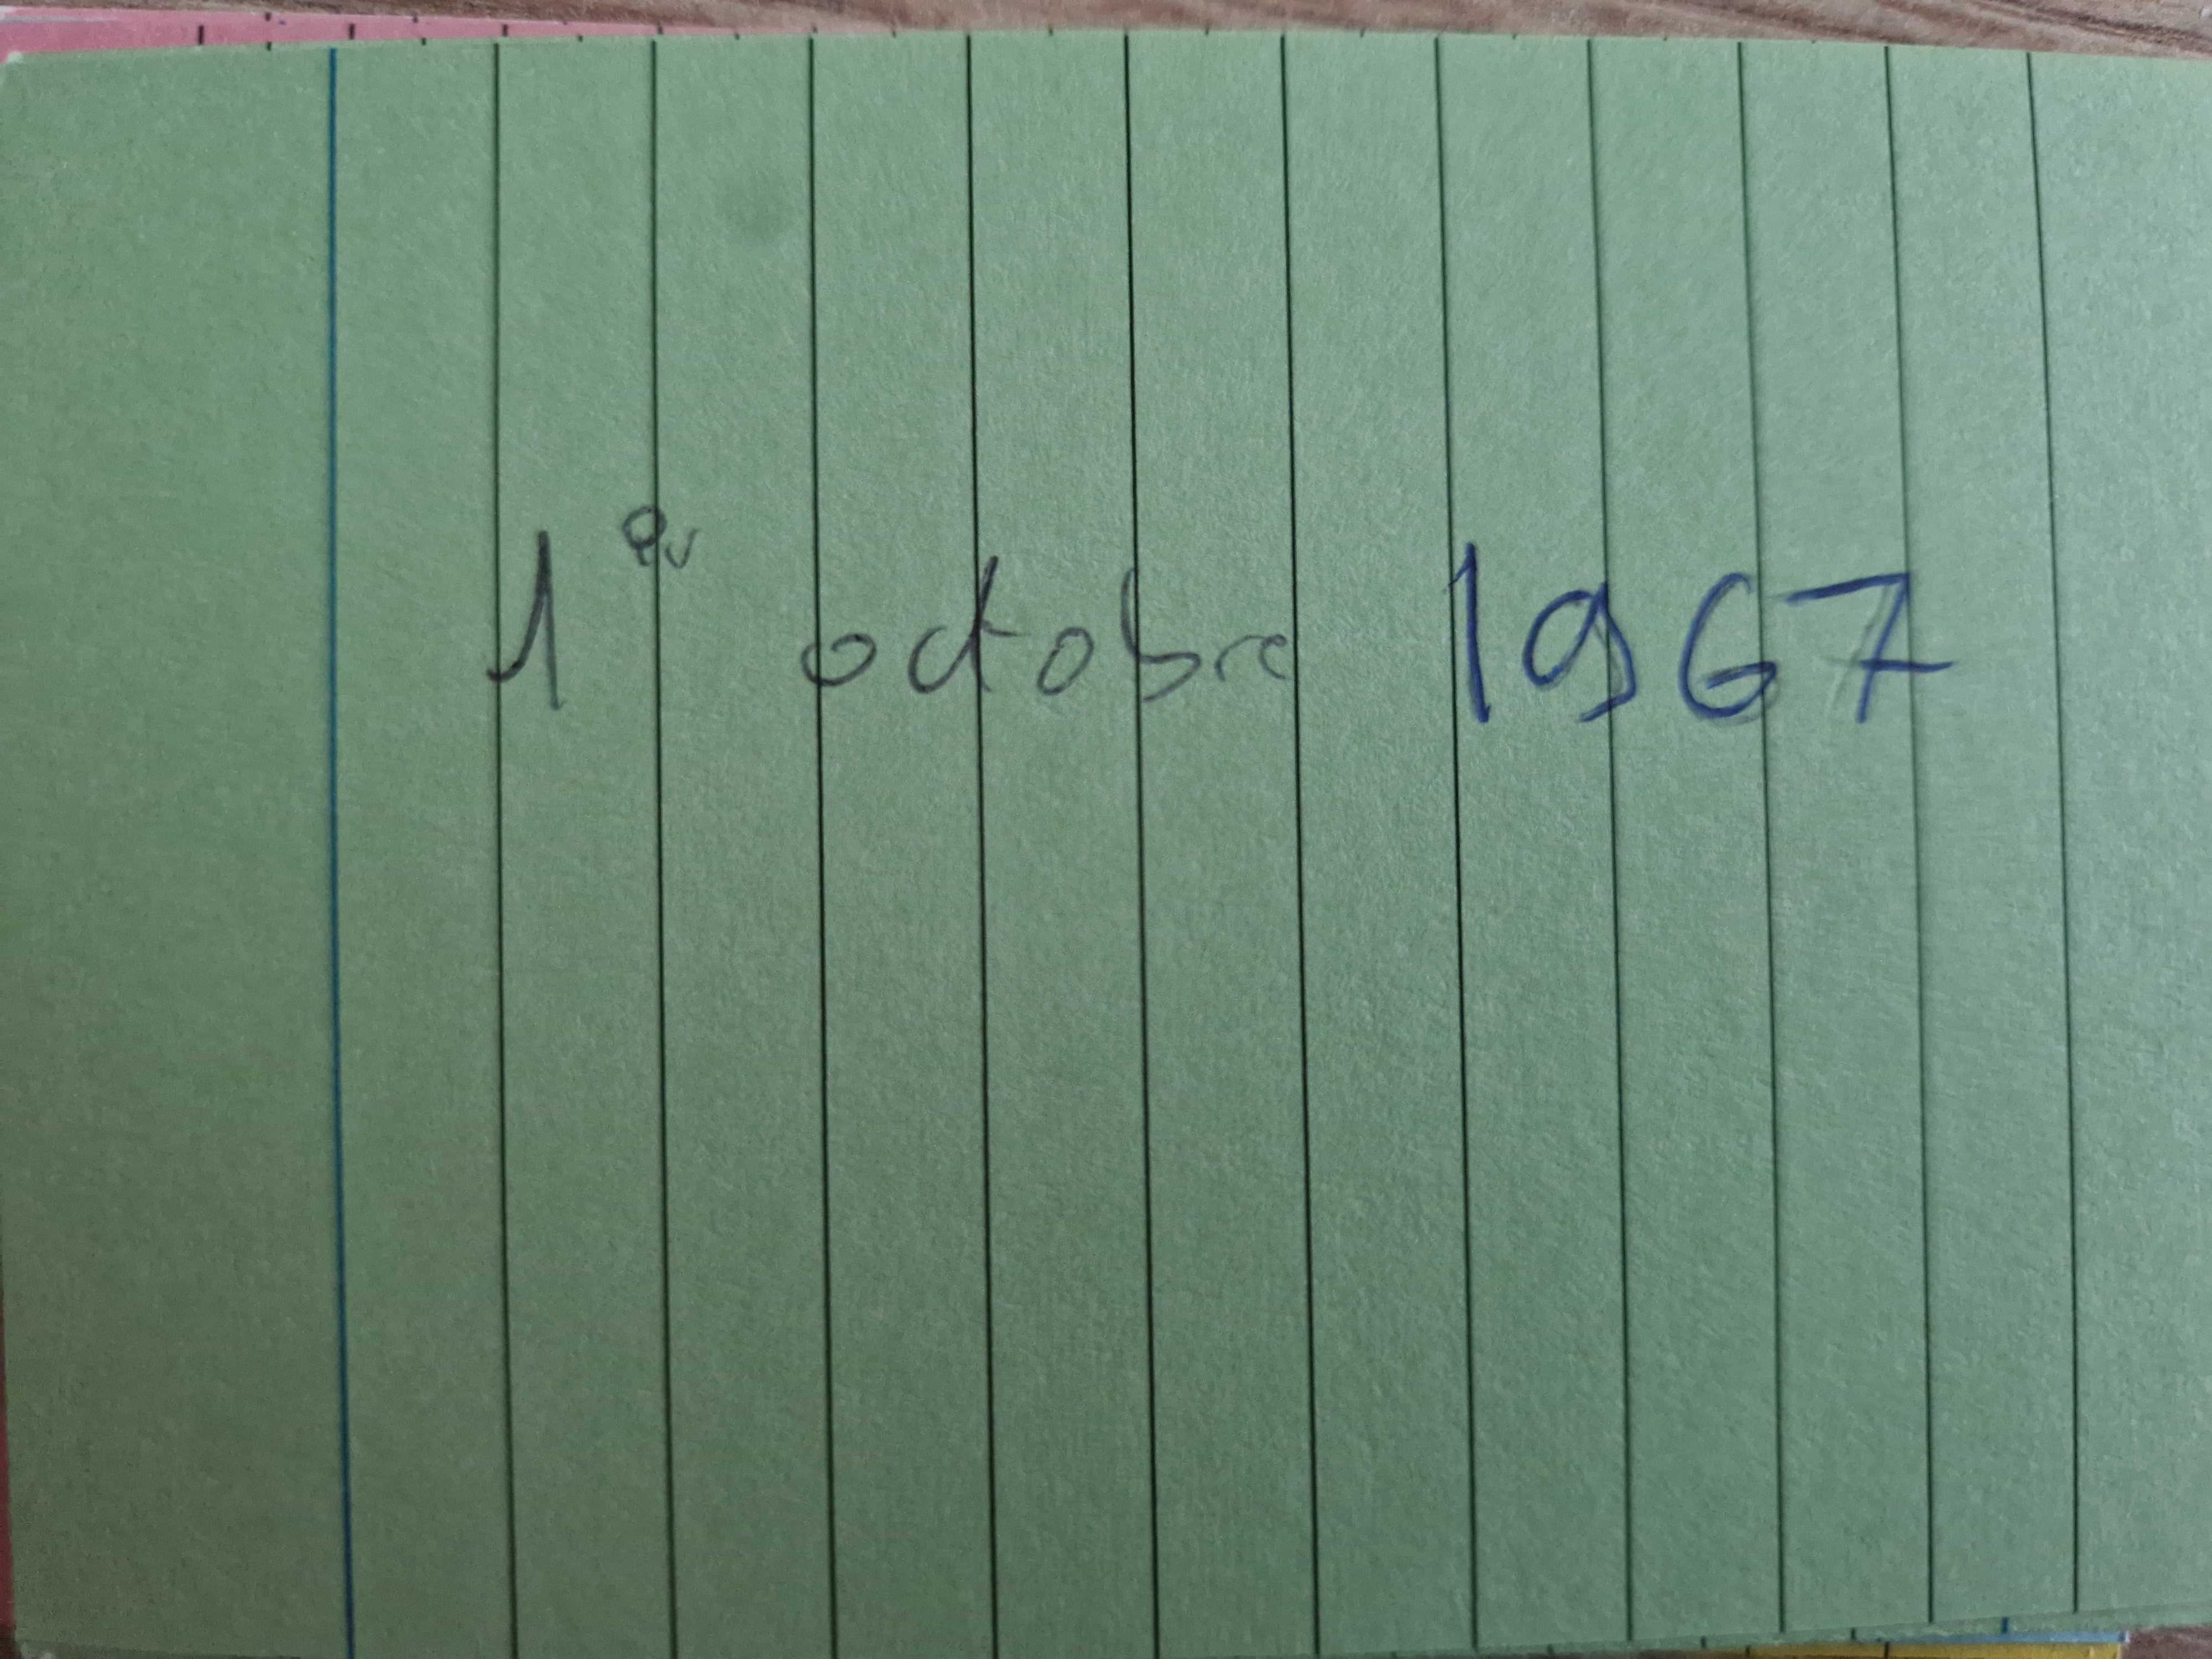 1er octobre 1967